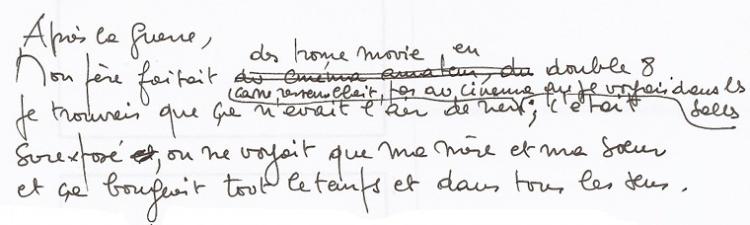 Après la guerre,
des home movie en
Mon père faisait du cinéma amateur, du double 8
(ça ne ressemblait pas au cinéma que je voyais dans les salles
Je trouvais que ça n'avait l'air de rien; c'était
surexposé et, on ne voyait que ma mère et ma sœur
et ça bougeait tout le temps et dans tous les sens.